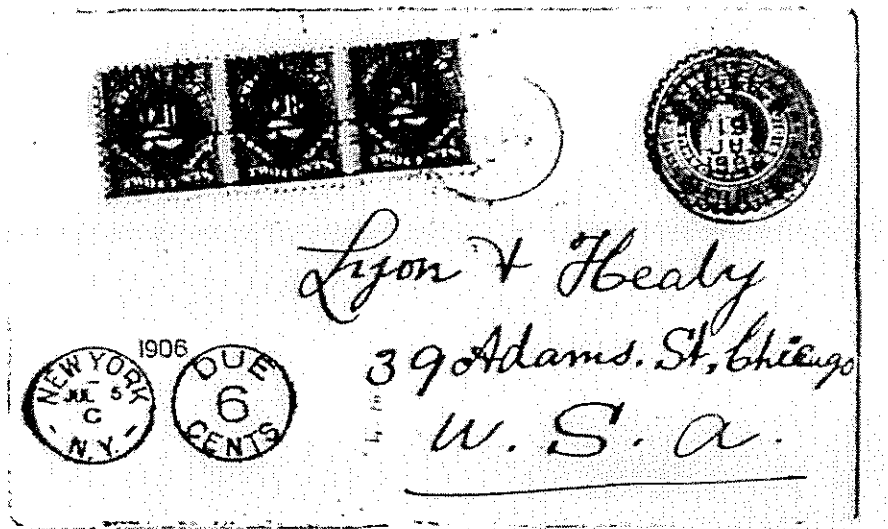 19
JU
190
Lyon & Healy
39 Adams. St, Chicago
U. S. A.
1906
NEW YORK
JUL 5
C
N.Y.
DUE
6
CENTS